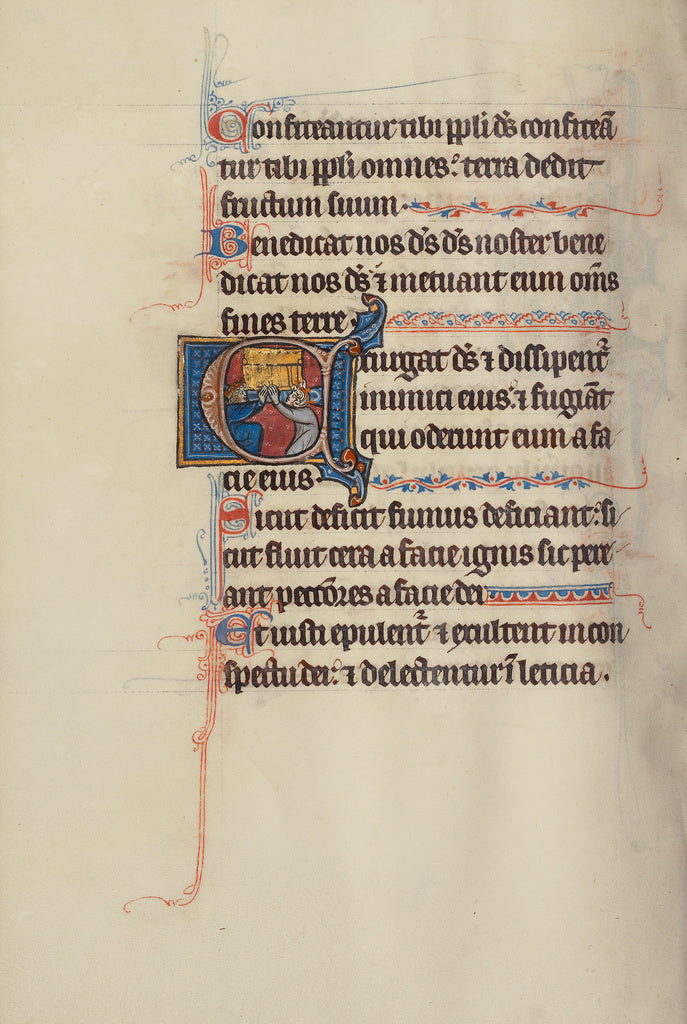 Confiteantur tibi ppli ds confiteā
tur tibi ppli omnes: terra dedit
fructum suum.
Benedicat nos ds ds noster bene
dicat nos ds ⁊ metuant eum oms
fines terre.
Exiugat ds ⁊ dissipent᷑
inimici eius: ⁊ fugiāt
qui oderunt eum a fa
cie eius
Sicut deficit fumus deficiant: si
cut fluit cera a facie ignis sic pere
ant peccōres a facie dei
Et iusti epulent᷑ ⁊ exultent in con
spectu dei: ⁊ delectentur ī leticia.